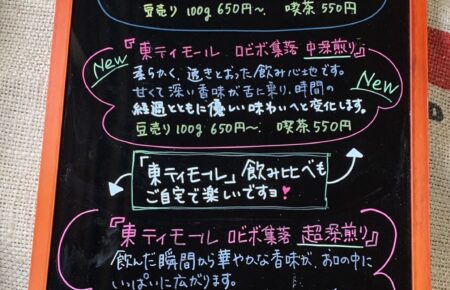 豆売り 100g 650円〜. 喫茶 550円
『東ティモール ロビボ集落 中深煎り』
New
柔らかく、透きとおった飲み心地です。
甘くて深い香味が舌に乗り、時間の
経過とともに優しい味わいへと変化します。
New
豆売り 100g 650円〜. 喫茶 550円
「東ティモール」飲み比べも
ご自宅で楽しいですョ
『東ティモール ロビボ集落 超深煎り』
飲んだ瞬間から華やかな香味が、お口の中に
いっぱいに広がります。